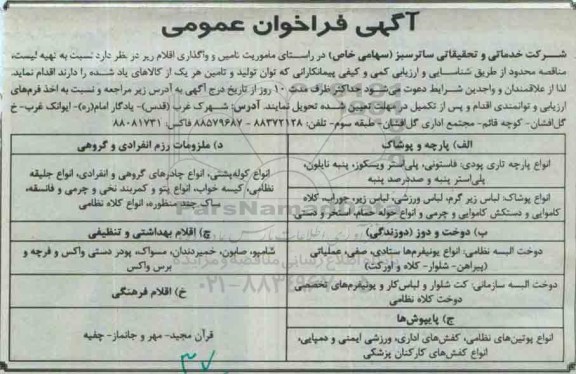 آگهی فراخوان عمومی
شرکت خدماتی و تحقیقاتی ساترسبز (سهامی خاص) در راستای ماموریت تامین و واگذاری اقلام زیر در نظر دارد نسبت به تهیه لیست،
مناقصه محدود از طریق شناسایی و ارزیابی کمی و کیفی پیمانکارانی که توان تولید و تامین هر یک از کالاهای یاد شده را دارند اقدام نماید.
لذا از علاقمندان و واجدین شرایط دعوت می‌شود حداکثر ظرف مدت ۱۰ روز از تاریخ درج آگهی به آدرس زیر مراجعه و نسبت به اخذ فرم‌های
ارزیابی و توانمندی اقدام و پس از تکمیل در مهلت تعیین شده تحویل نمایند. آدرس: شهرک غرب (قدس)- یادگار امام(ره)- ایوانک غرب- خ
گل‌افشان- کوچه قائم- مجتمع اداری گل‌افشان- طبقه سوم- تلفن: ۸۸۳۷۲۱۲۸ - ۸۸۵۷۹۶۸۷ فاکس: ۸۸۰۸۱۷۳۱
الف) پارچه و پوشاک
انواع پارچه تاری پودی: فاستونی، پلی‌استر ویسکوز، پنبه نایلون،
پلی‌استر پنبه و صددرصد پنبه
انواع پوشاک: لباس زیر گرم، لباس ورزشی، لباس زیر، جوراب، کلاه
کاموایی و دستکش کاموایی و چرمی و انواع حوله حمام، استخر و دستی
ب) دوخت و دوز (دوزندگی)
دوخت البسه نظامی: انواع یونیفرم‌ها ستادی، صفی، عملیاتی
(پیراهن- شلوار- کلاه و اورکت)
دوخت البسه سازمانی: کت شلوار و لباس‌کار و یونیفرم‌های تخصصی
دوخت کلاه نظامی
ج) پایپوش‌ها
انواع پوتین‌های نظامی، کفش‌های اداری، ورزشی ایمنی و دمپایی،
انواع کفش‌های کارکنان پزشکی
د) ملزومات رزم انفرادی و گروهی
انواع کوله‌پشتی، انواع چادرهای گروهی و انفرادی، انواع جلیقه
نظامی، کیسه خواب، انواع پتو و کمربند نخی و چرمی و فانسقه،
ساک چند منظوره، انواع کلاه نظامی
چ) اقلام بهداشتی و تنظیفی
شامپو، صابون، خمیردندان، مسواک، پودر دستی واکس و فرچه و
برس واکس
خ) اقلام فرهنگی
قرآن مجید- مهر و جانماز- چفیه
ParsNamad
۰۲۱-۸۸۳۴۹۶۷۰
۳۷